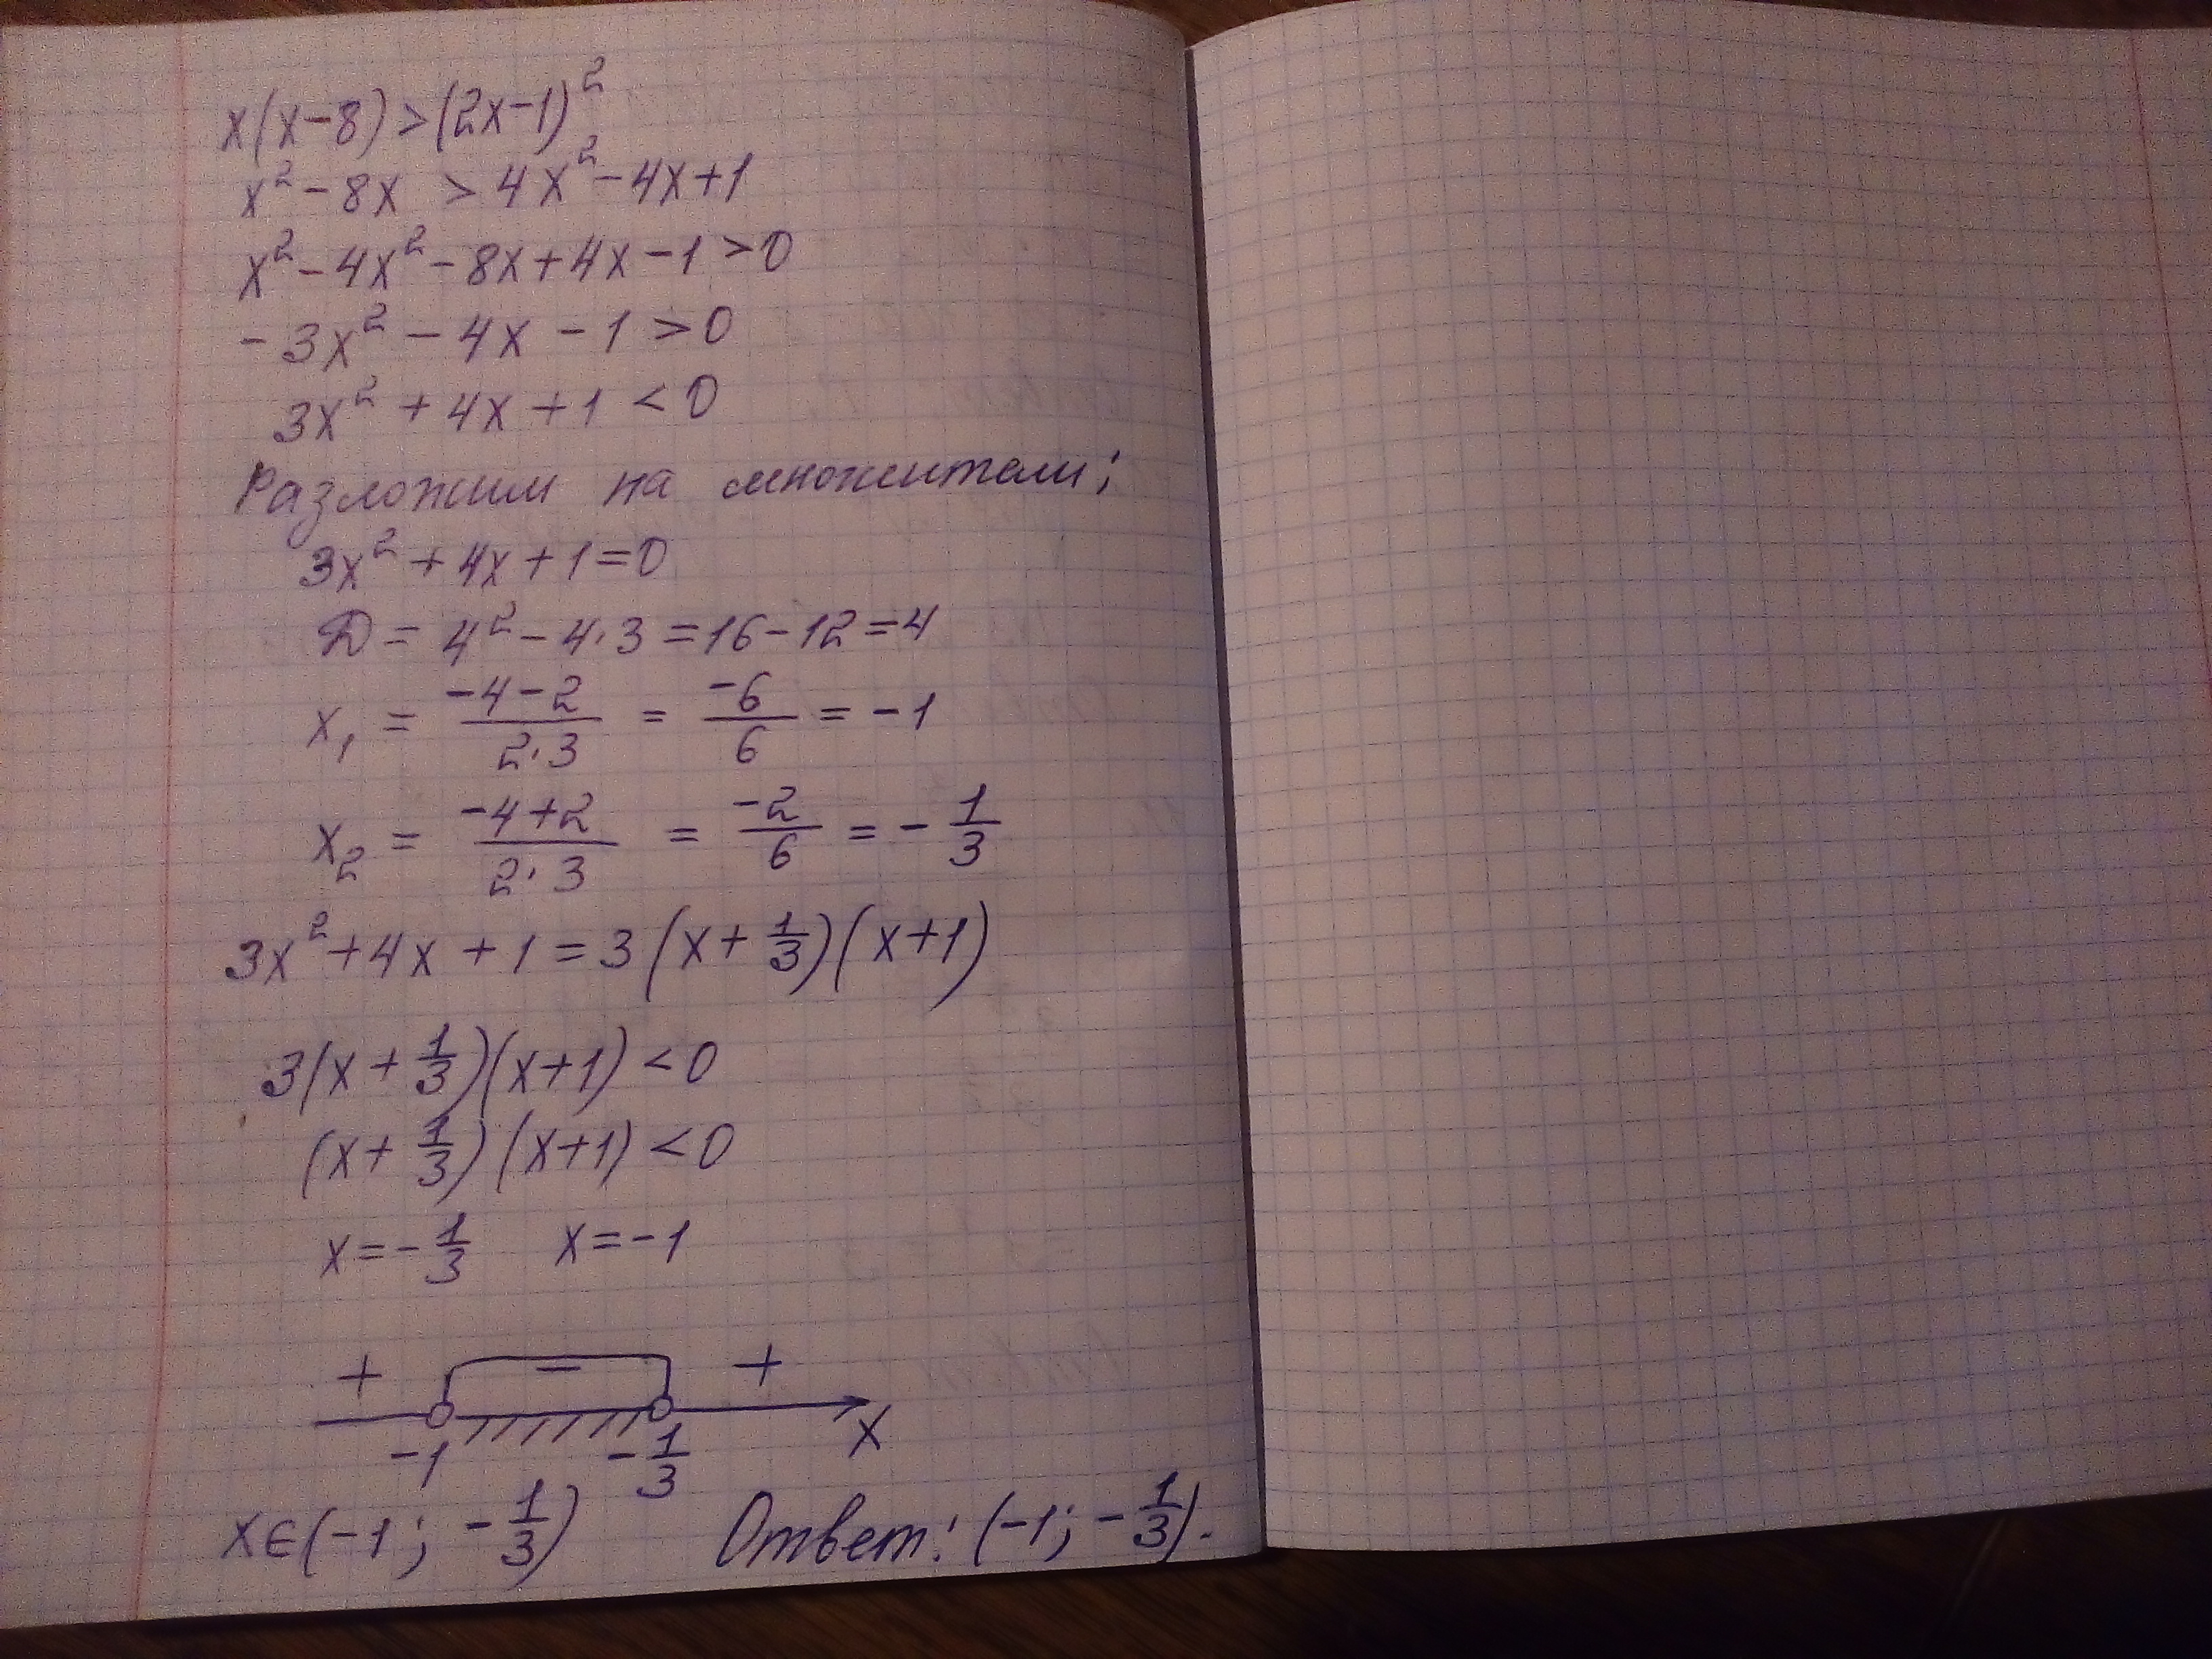 x(x-8)>(2x-1)²
x²-8x > 4x²-4x+1
x²-4x²-8x+4x-1>0
-3x²-4x-1>0
3x²+4x+1<0
Разложим на множители:
3x²+4x+1=0
D= 4²-4·3=16-12=4
x₁ = (-4-2)/(2·3) = -6/6 = -1
x₂ = (-4+2)/(2·3) = -2/6 = -1/3
3x²+4x+1=3(x+1/3)(x+1)
3(x+1/3)(x+1)<0
(x+1/3)(x+1)<0
x=-1/3 x=-1
+ - +
-1 -1/3 x
x∈(-1; -1/3) Ответ: (-1; -1/3).